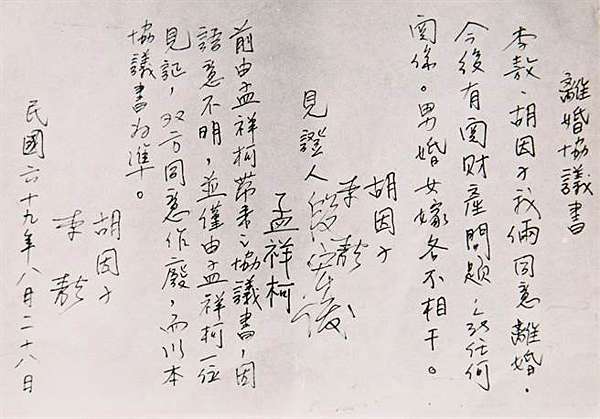 離婚協議書
李敖、胡因子我倆同意離婚。
今後有関財產問題 任何
関係。男婚女嫁各不相干。
胡因子
李敖
見證人 段宏俊
孟祥柯
前由孟祥柯帶來之協議書，因
語意不明，並僅由孟祥柯一位
見証，双方同意作廢，而以本
協議書为準。
胡因子
李敖
民國六十九年八月二十八日